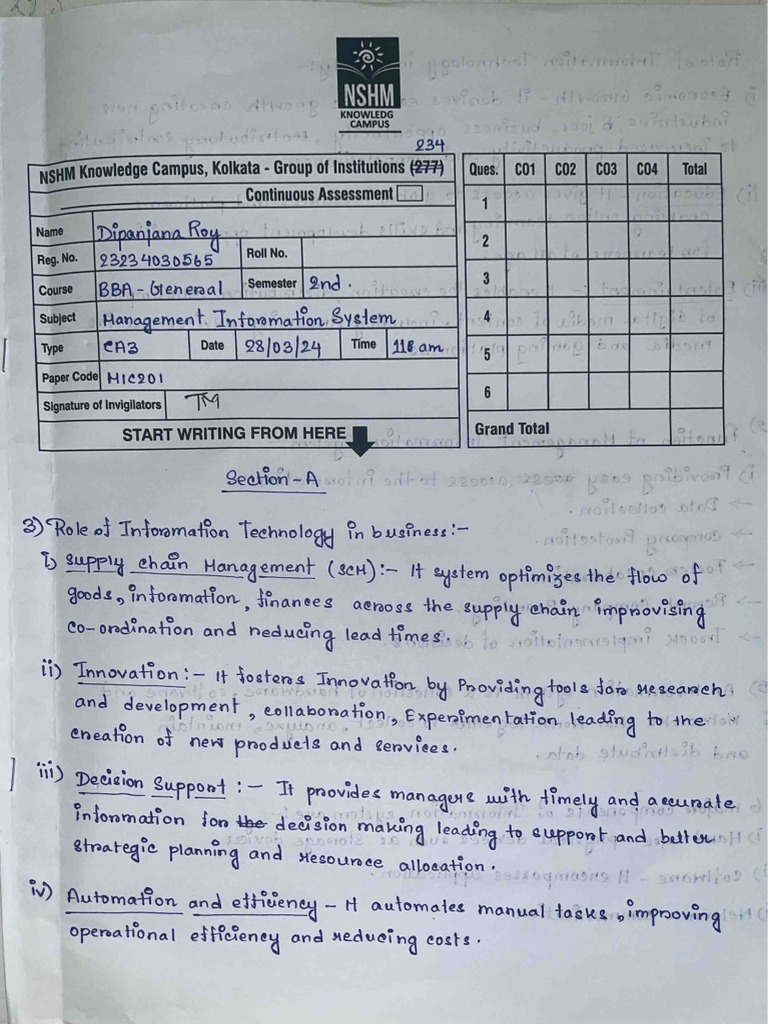 NSHM
KNOWLEDG
CAMPUS
234
NSHM Knowledge Campus, Kolkata - Group of Institutions (277)
Continuous Assessment
Name Dipanjana Roy
Reg. No. 23234030565 Roll No.
Course BBA - General Semester 2nd.
Subject Management Information System
Type CA3 Date 28/03/24 Time 11 am
Paper Code MIC201
Signature of Invigilators TM
START WRITING FROM HERE
Ques. CO1 CO2 CO3 CO4 Total
1
2
3
4
5
6
Grand Total
Section-A
3) Role of Information Technology in business:-
i) Supply chain Management (SCM):- It system optimizes the flow of
goods, information, finances across the supply chain improvising
co-ordination and reducing lead times.
ii) Innovation:- It fosters Innovation by Providing tools for research
and development, collaboration, Experimentation leading to the
creation of new products and services.
iii) Decision Support:- It provides managers with timely and accurate
information for the decision making leading to support and better
strategic planning and resource allocation.
iv) Automation and efficiency - It automates manual tasks, improving
operational efficiency and reducing costs.